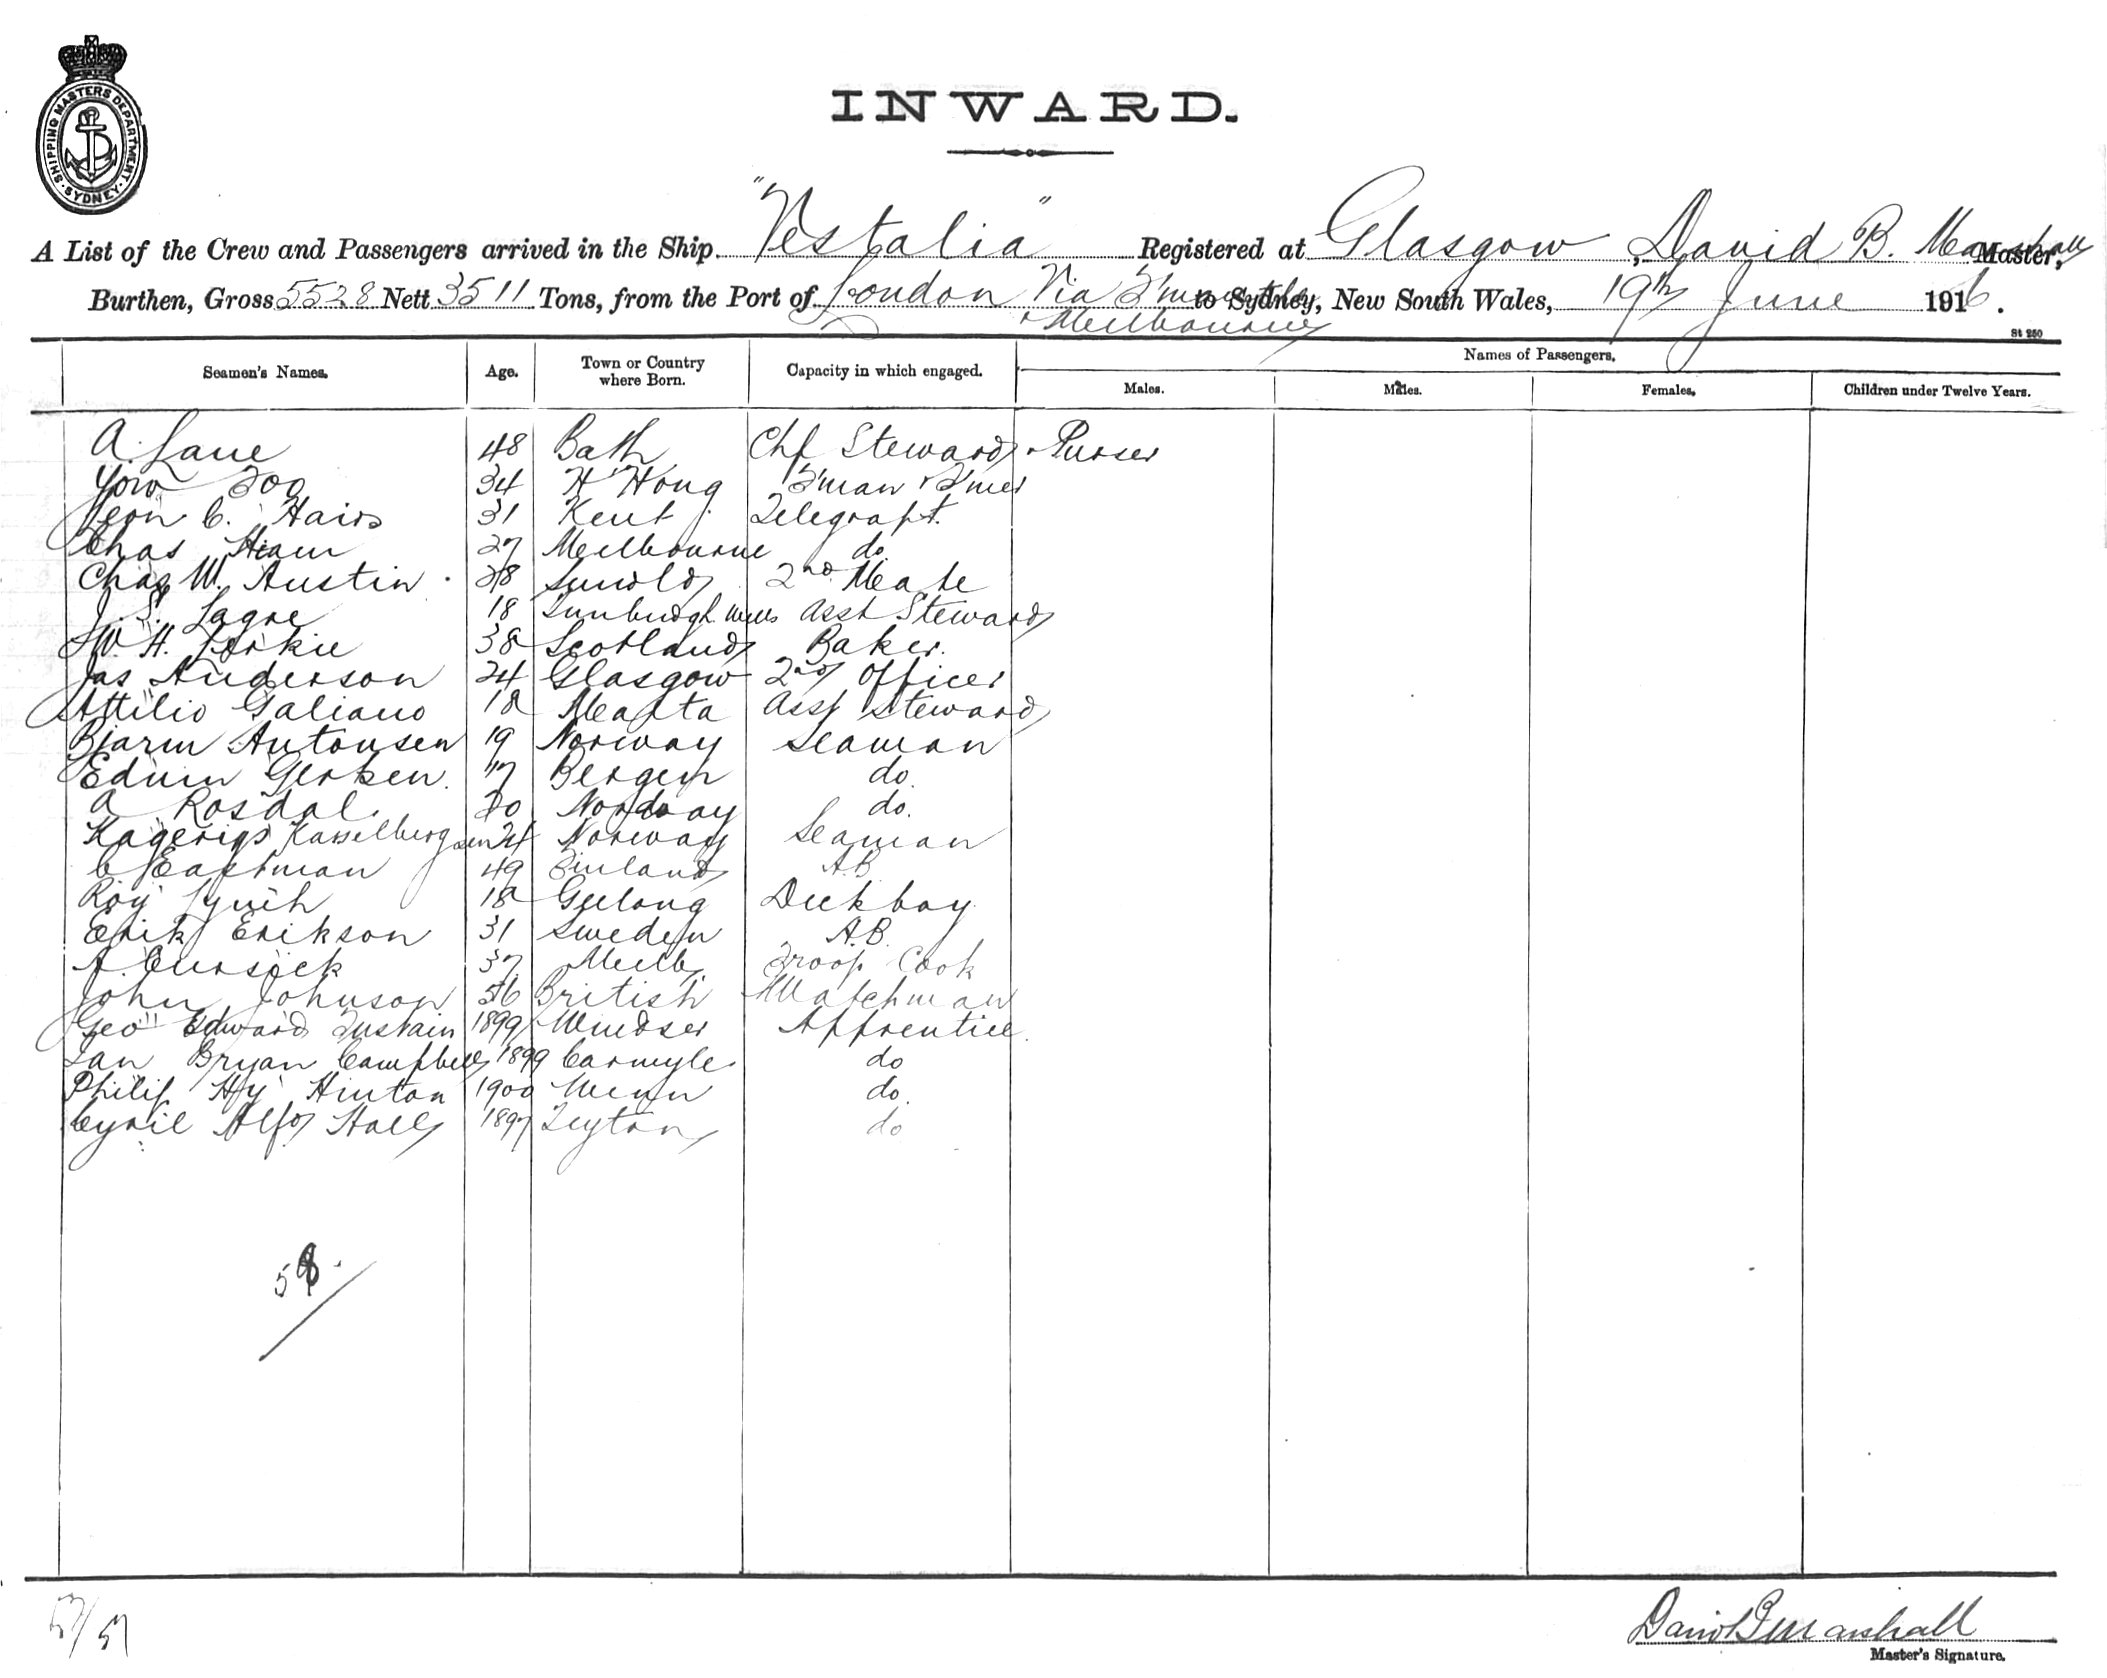 SHIPPING MASTERS DEPARTMENT. SYDNEY.
INWARD.
A List of the Crew and Passengers arrived in the Ship "Vestalia" Registered at Glasgow, David B. Marshall Master,
Burthen, Gross 5528 Nett 3511 Tons, from the Port of London Via to Sydney, New South Wales, 19th June 1916.
Melbourne
St 250
Seamen's Names. Age. Town or Country where Born. Capacity in which engaged. Names of Passengers.
Males. Males. Females. Children under Twelve Years.
A. Lane 48 Bath Chf Steward Purser
Yow Foo 34 H Hong F'man
Leon C. Hairs 31 Kent Telegrapt.
Chas 27 Melbourne do
Chas W. Austin 28 2nd Mate
J. S. 18 Wells Asst Steward
W. H. 38 Scotland Baker.
Jas Anderson 24 Glasgow 2nd Officer
Attilio Galiano 18 Asst Steward
Bjarm Antonsen 19 Norway Seaman
Edwin Gerksen. 17 Bergen do.
A Rosdal 20 Norway do.
Kasselburgsen 24 Norway Seaman
C Eastman 49 Finland A.B.
Roy Lynch 18 Geelong Deckboy
Erik Erikson 31 Sweden A.B.
A. Cursick 37 Melb. Troop Cook
John Johnson 56 British Watchman
Geo Edward Sustain 1899 Windser Apprentice.
Ian Bryan Campbell 1899 Carmyle do
Philip Hy Hinton 1900 do.
Cyril Alfd Hall 1897 Leyton do
58.
57/57
David B Marshall
Master's Signature.